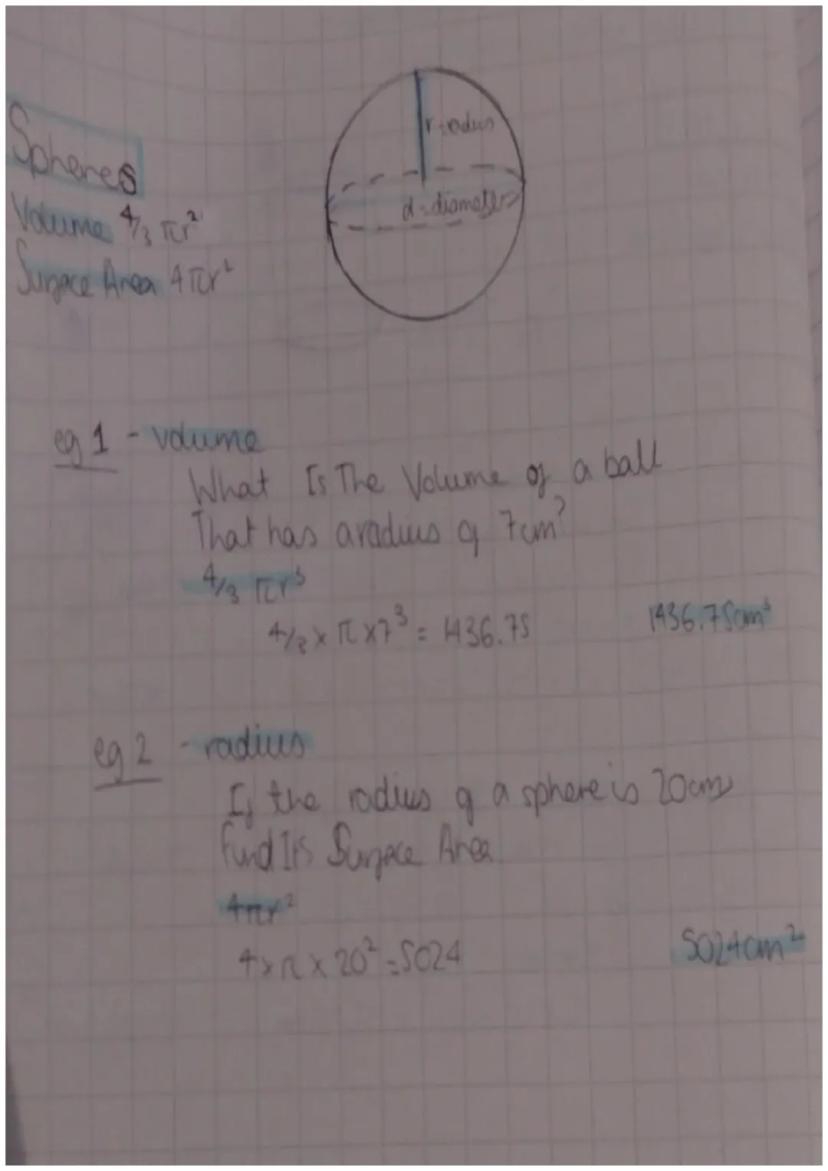 Spheres
Volume 4/3 πr²
Surface Area 4πr²
r=radius
d=diameter
eg 1 - volume
What Is The Volume of a ball
That has a radius of 7cm?
4/3 πr³
4/3 × π × 7³ = 1436.75
1436.75cm³
eg 2 - radius
If the radius of a sphere is 20cm
Find Its Surface Area
4πr²
4 × π × 20² = 5024
5024cm²